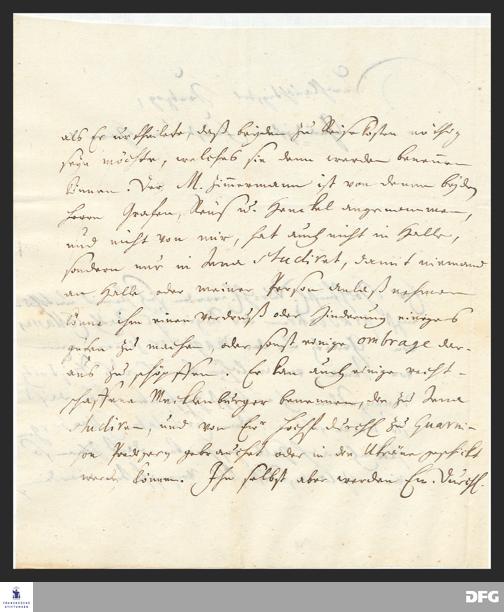 als Er urtheilete, daß beyden zu Reisekosten nöthig
seyn möchte, welches sie denn werden benennen
können. Der M. Zimmermann ist von denen beyden
Herrn Grafen, Reuß u. Henckel angenommen,
und nicht von mir, hat auch nicht in Halle,
sondern nur in Jena studiret, damit niemand
an Halle oder meiner Person anlaß nehmen
könne ihm einen Verdruß oder Hinderung
zu machen oder sonst einige ombrage dar-
aus zu schöpffen. Er kan auch einige recht-
schaffene Mecklenburger benennen, die zu Jena
studiren, und von Ew. Hochf. Durchl. zu Guarni-
son Predigern gebrauchet oder in die Ukräne geschickt
werden können. Ihn selbst aber werden Ew. Durchl.
FRANCKESCHE STIFTUNGEN
DFG